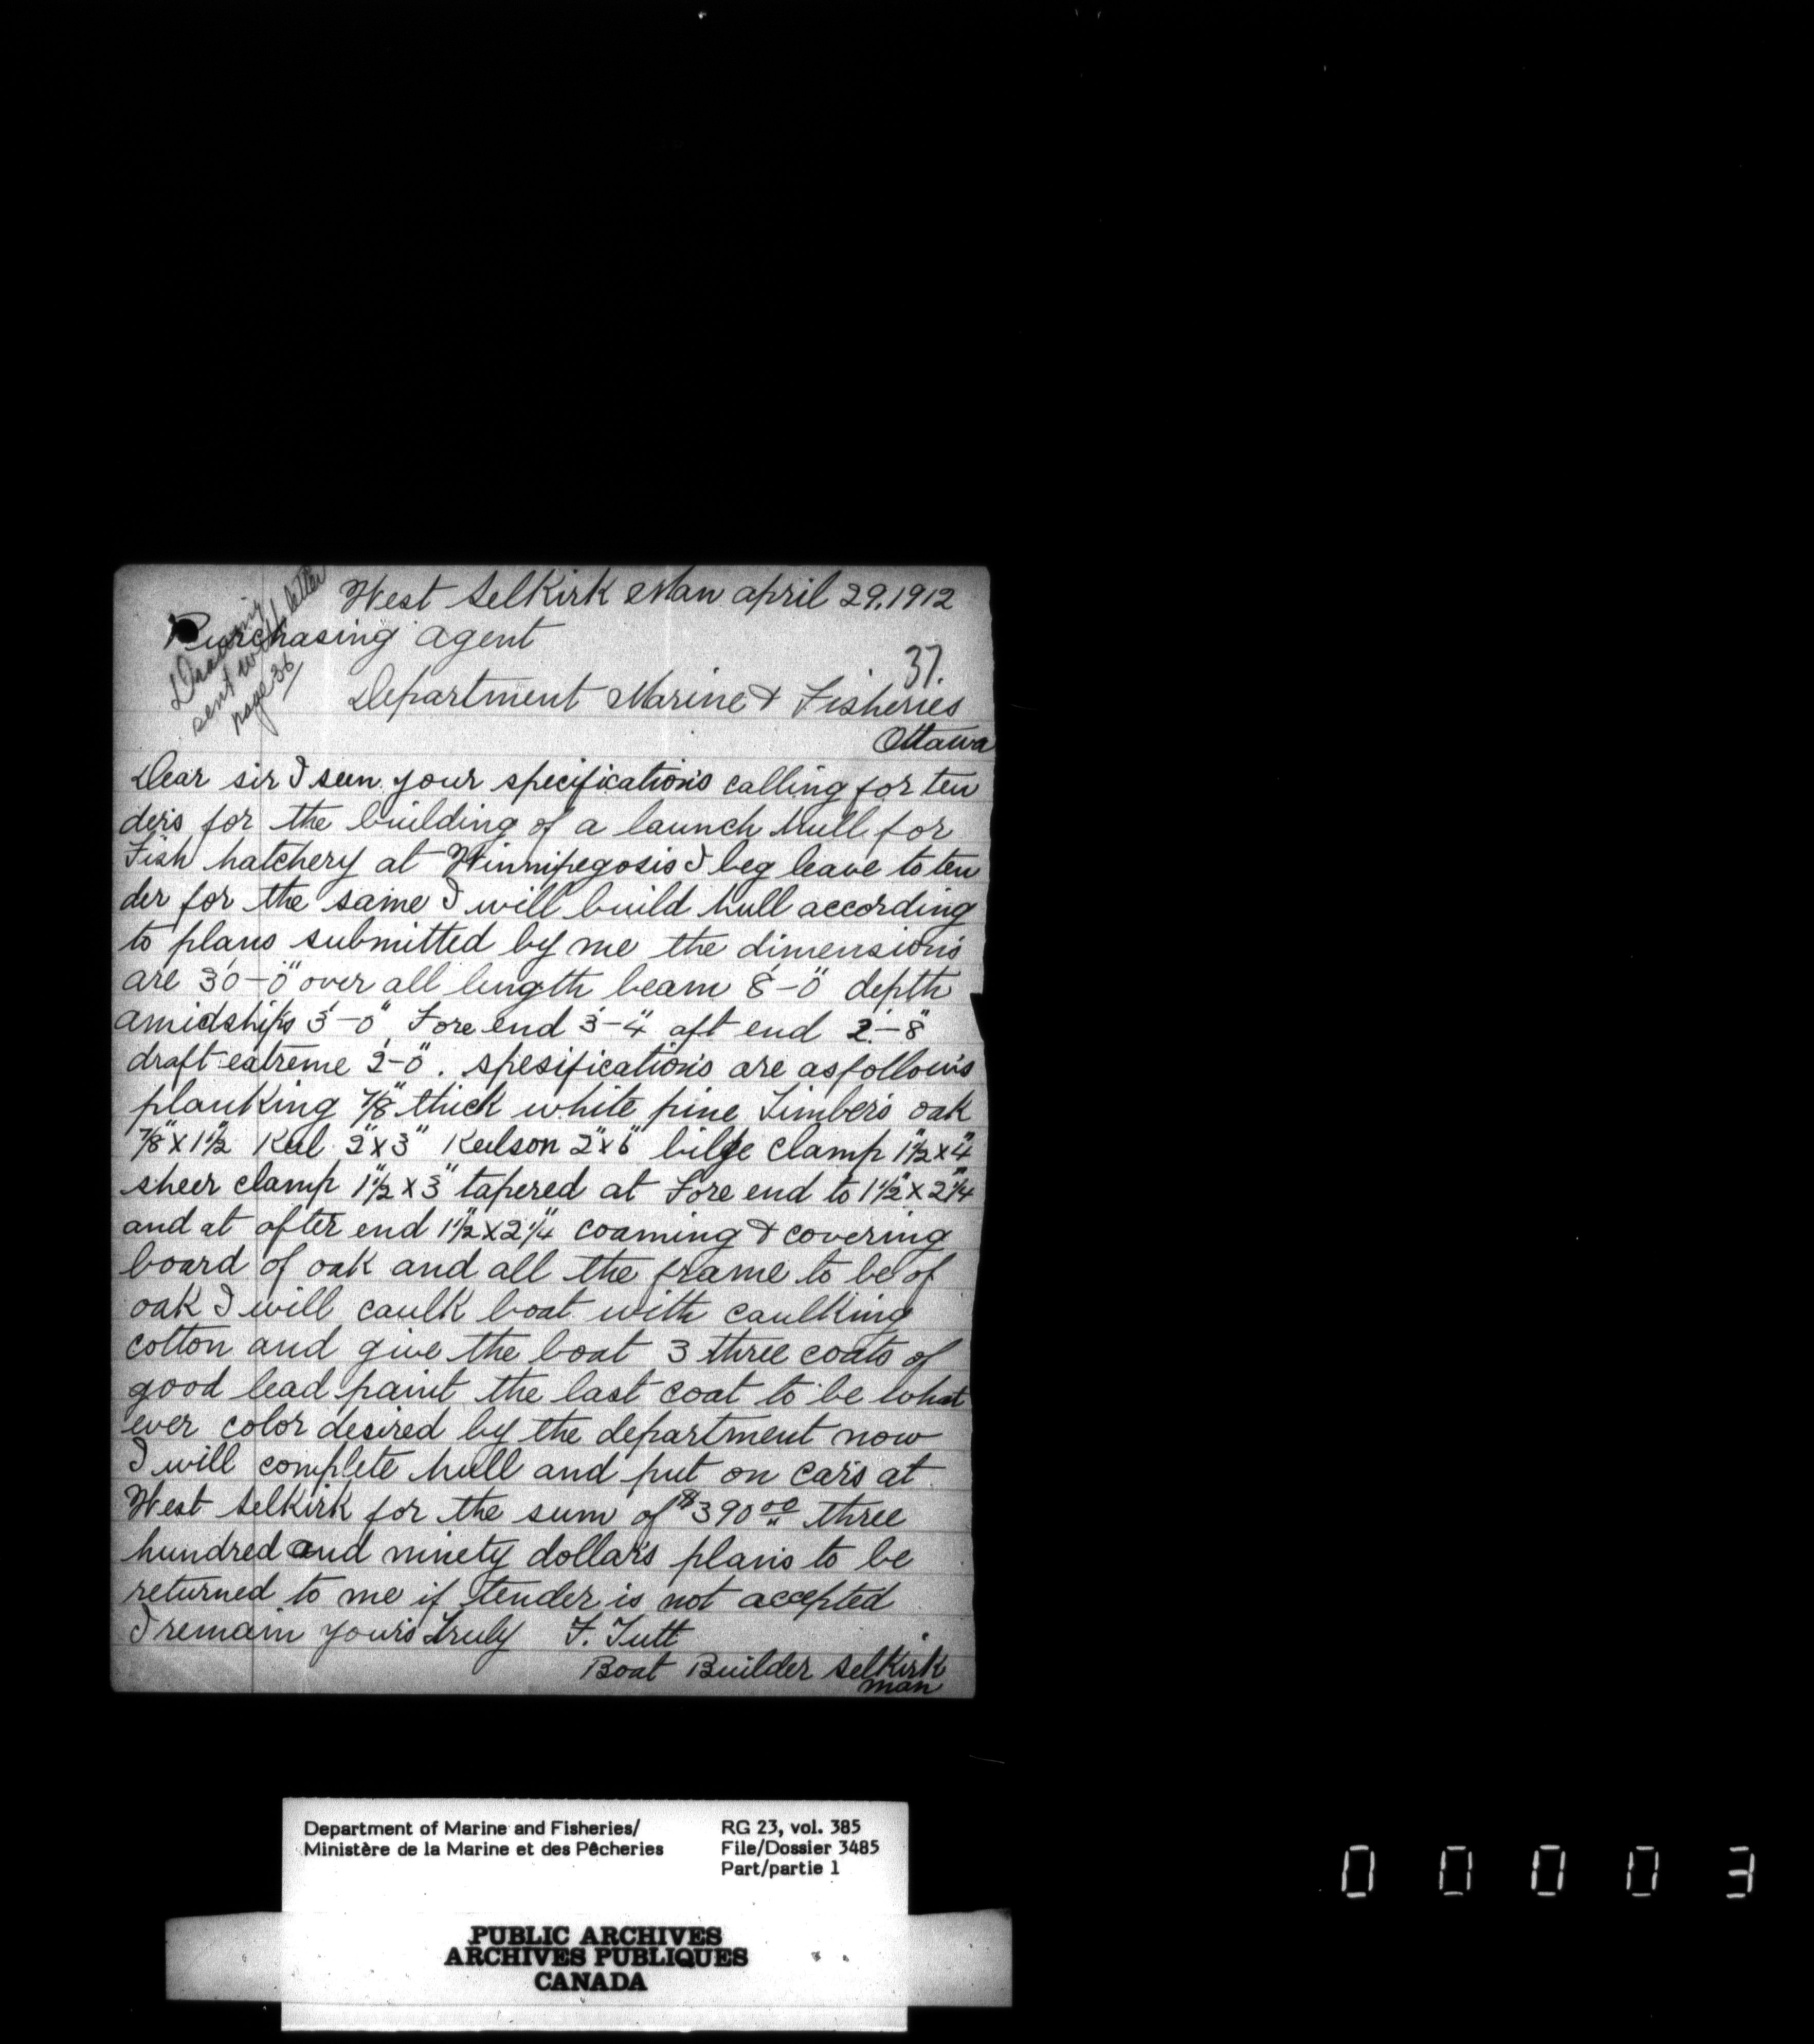 West Selkirk Man april 29.1912
Drawing
sent with letter
page 36/
Purchasing agent
37.
Department Marine & Fisheries
Ottawa
Dear sir I seen your specifications calling for ten
ders for the building of a launch hull for
Fish hatchery at Winnipegosis I beg leave to ten
der for the same I will build hull according
to plans submitted by me the dimensions
are 30'-0" over all length beam 8'-0" depth
amidships 3'-0" Fore end 3'-4" aft end 2'-8"
draft extreme 2'-0". spesifications are as follows
planking 7/8" thick white pine Timbers oak
7/8"x1 1/2" Keel 2"x3" Keelson 2"x6" bilge clamp 1 1/2"x4"
sheer clamp 1 1/2"x3" tapered at Fore end to 1 1/2"x2 1/4"
and at after end 1 1/2"x2 1/4" coaming & covering
board of oak and all the frame to be of
oak I will caulk boat with caulking
cotton and give the boat 3 three coats of
good lead paint the last coat to be what
ever color desired by the department now
I will complete hull and put on cars at
West Selkirk for the sum of $390 00 three
hundred and ninety dollars plans to be
returned to me if tender is not accepted
I remain yours Truly F. Tutt
Boat Builder Selkirk
man
Department of Marine and Fisheries/
Ministère de la Marine et des Pêcheries
RG 23, vol. 385
File/Dossier 3485
Part/partie 1
PUBLIC ARCHIVES
ARCHIVES PUBLIQUES
CANADA
0 0 0 0 3